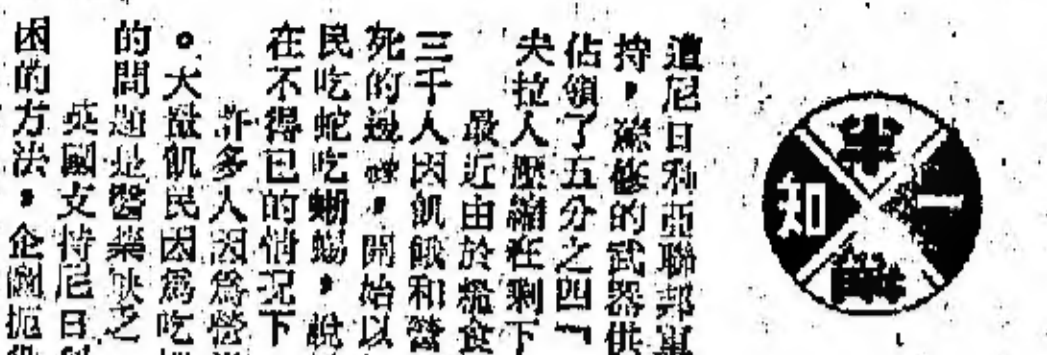 一知半解
遭尼日利亞聯邦軍
持，蘇修的武器供
佔領了五分之四「
夬拉人壓縮在剩下
最近由於糧食
三千人因飢餓和營
死的邊，開始以
民吃蛇吃蜥蜴，說
在不得已的情況下
許多人因爲營
。大批飢民因爲吃
的問題是醫藥缺乏
英國支持尼日利
困的方法，企圖扼